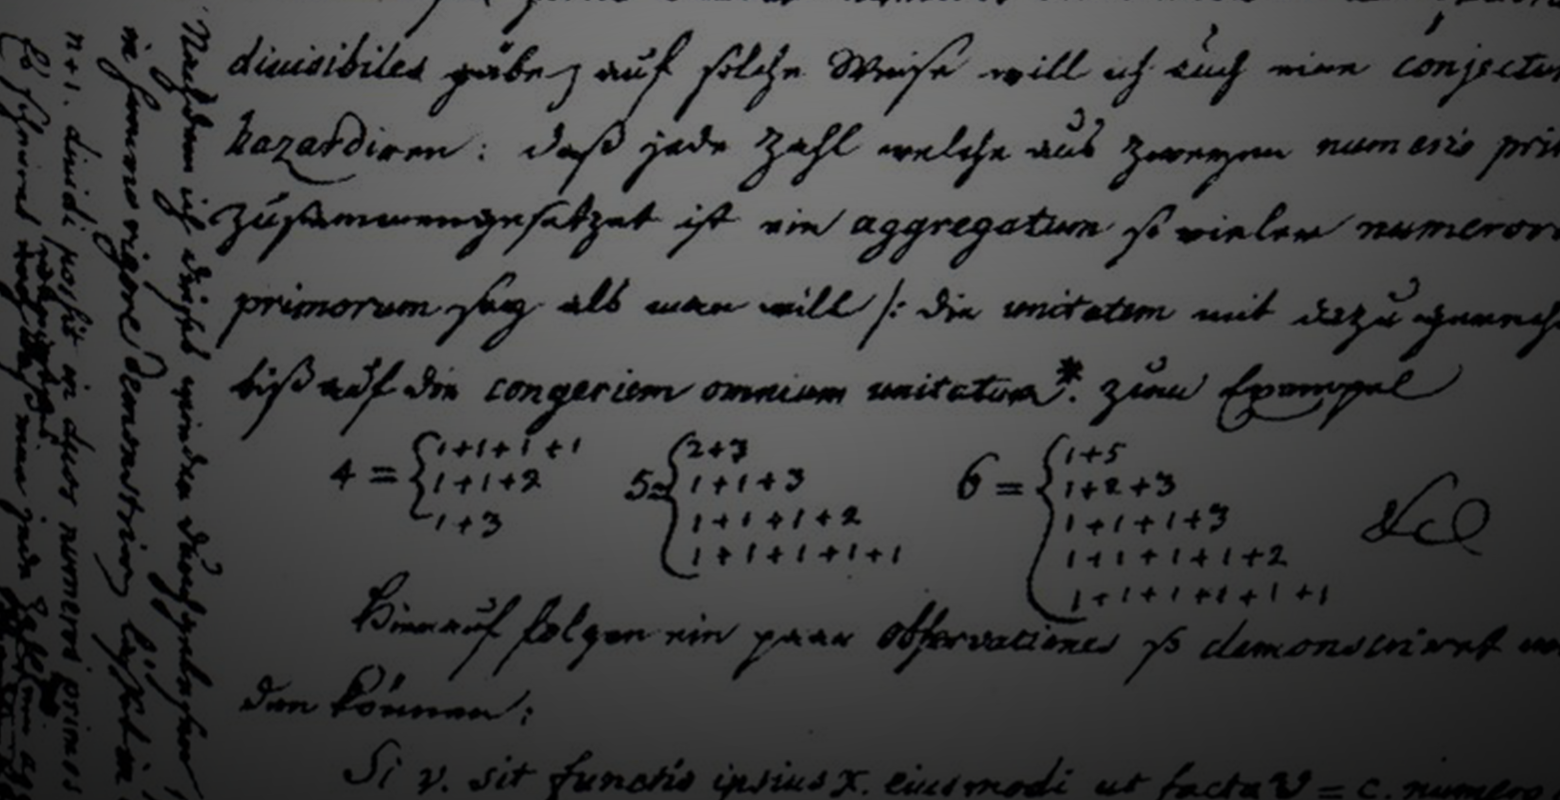 divisibiles gäbe, auf solche Weise will ich auch eine conjectu
hazardiren: daß jede Zahl welche aus zweyen numeris pri
zusammengesetzet ist ein aggregatum so vieler numeror
primorum sey als man will /: die unitatem mit dazu gerech
biß auf die congeriem omnium unitatum*. zum Exempel
4 = { 1+1+1+1
1+1+2
1+3
5 = { 2+3
1+1+3
1+1+1+2
1+1+1+1+1
6 = { 1+5
1+2+3
1+1+1+3
1+1+1+1+2
1+1+1+1+1+1
&c
Hierauf folgen ein paar observationes so demonstriret we
den können:
Si v. sit functio ipsius x. eiusmodi ut facta v = c. numero
Nachdem ich dieses wieder durchgelesen
in summo rigore demonstriren läßet in
n+1. dividi possit in duos numeros primos
Es scheinet eine jede Zahl